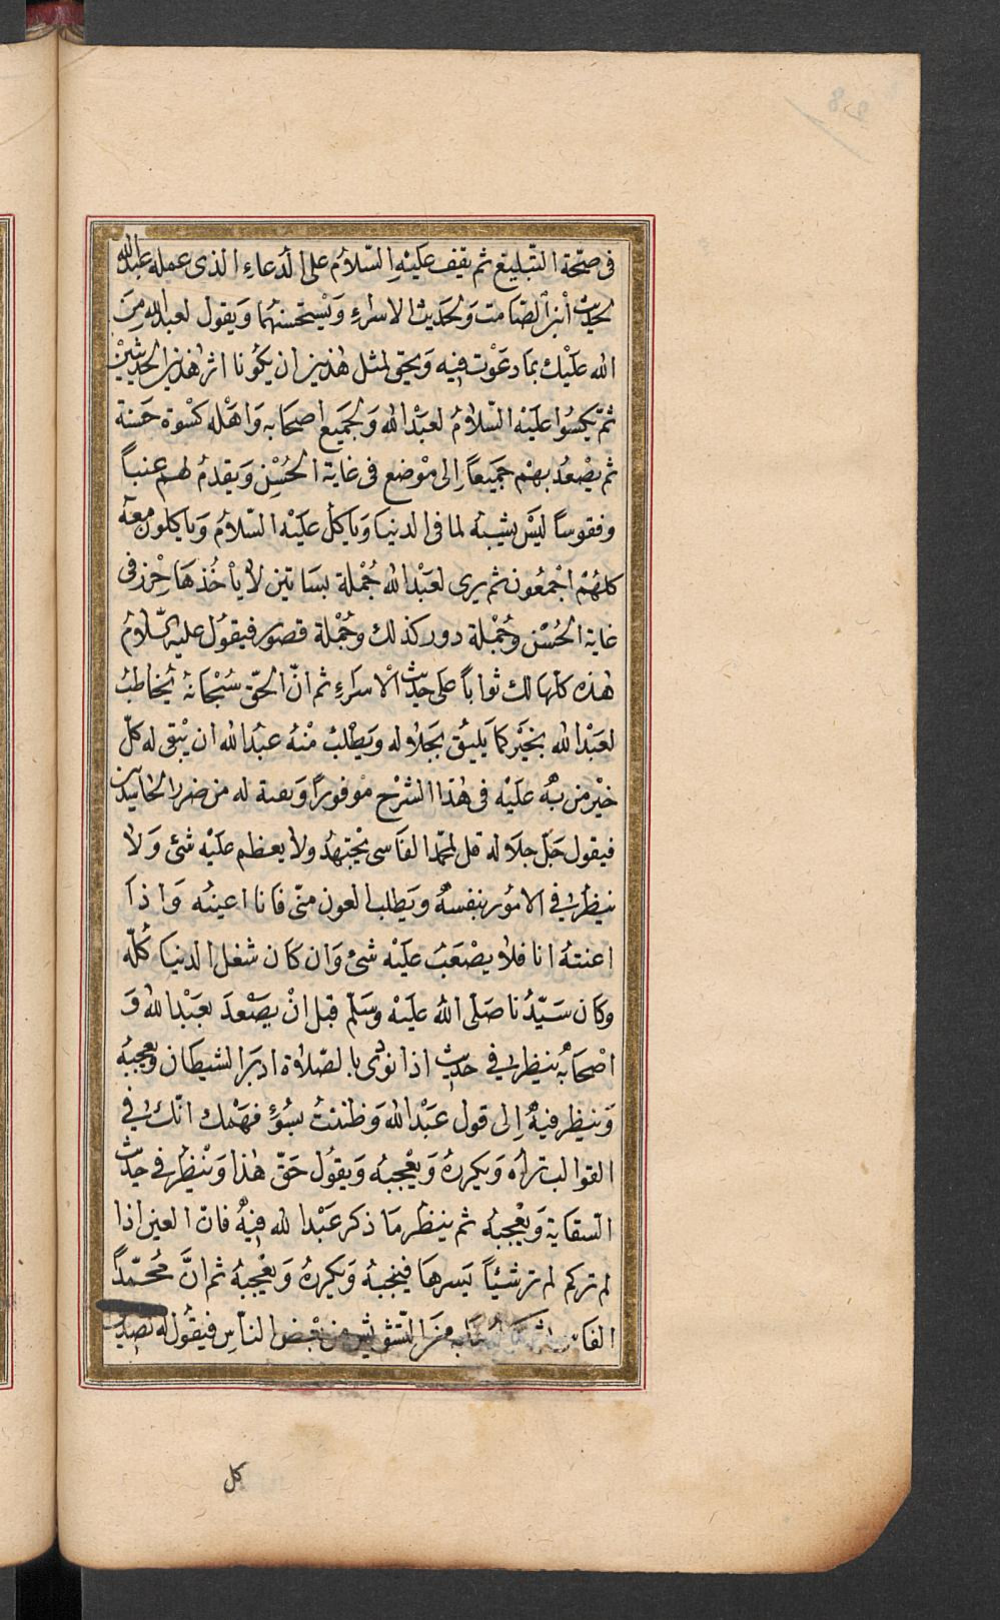 في صحّة التبليغ ثم يقف عليْهِ السّلامُ على الدّعاءِ الذى عمله عبدالله
لحديث ابن الصّامت وَلحديث الاسراءِ وَيستحسنهُما وَيقول لعبدالله مِنَ
الله عليْك بمَا دعَوْت فيه وَيحق لمثل هٰذين ان يكُونا اثر هٰذين الحديثيْن
ثمّ يكسُوا عليْه السّلامُ لعبْد الله وَلجميع اصحَابه وَاهْله كسْوة حَسنة
ثم يصْعدُ بهمْ جميعاً اِلى موْضع فى غاية الحُسْن وَيقدمُ لهم عنباً
وفقوساً ليسَ يشبهُ لما فى الدنيا وَياكلُ عليْه السّلامُ وَياكلون معهُ
كلهُمْ اجْمعُون ثم يرى لعبْد الله جُمْلة بسَاتين لا ياْخُذهَا حْرز فى
غاية الحُسْن وجُمْلة دور كذلك وجُمْلة قصور فيقوُل عليه السّلامُ
هٰذه كلّها لك ثواباً على حديث الاْسراءِ ثم انّ الحقّ سُبْحانهُ يُخاطبُ
لعبْد الله بخيْر كمَا يَليْق بجَلاله ويَطْلبُ مْنهُ عبْد الله ان يْبقى له كلّ
خيْر من بهُ عليْه فى هٰذا الشرْح موْفورًا وَبعنة له من ضرر الحايدين
فيقول جَلّ جلاَله قل لمحمّد الفاسى يجْتهدُ ولا يعظم عليْه شئ وَلا
ينيظر في الامُور بنفسهُ ويَطلب العون منّى فانا اعينهُ وَاذا
اعنتهُ انا فلا يصْعَبُ عليْه شئ وَان كان شغل الدنيا كُلّه
وكان سَيّدُنا صَلى اللهُ عليْه وسَلّم قبل انْ يصَعْدَ بعبْد الله وَ
اصْحابهُ ينيظر في حديث اذا نودى بالصّلاة ادبَر الشيطان ويعجبهُ
وَينيظر فيهُ اِلى قول عبْد الله وَظننتُ بسُوْءِ فهْمك انّك في
القوالب تراه وَيكررهُ وَيعْجبهُ وَيقوُل حَقّ هٰذا وَينيظر في حديث
السّقاية وَيعْجبهُ ثم ينيظر مَا ذكر عَبْد الله فيهُ فانّ العين اذا
لم تركم لم تر شيْئاً يَسرهَا فيعْجبهُ وَيكررهُ وَيعْجبهُ ثم انَّ مُحَمّداً
من التّشويش من بعْض النّاس فيقوُل له
كل